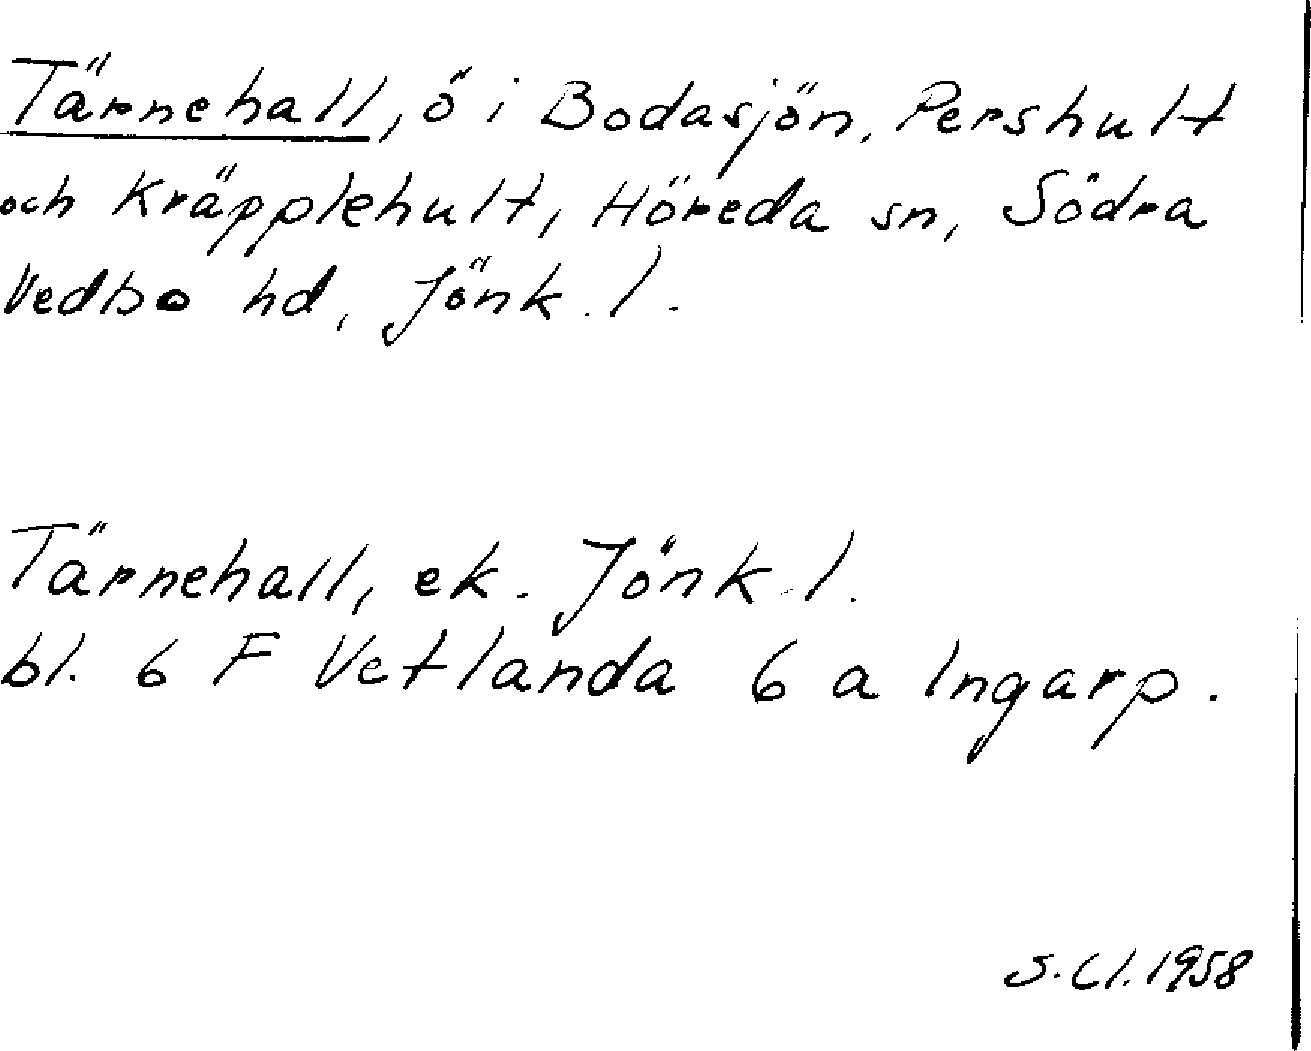 Tärnehall, ö i Bodasjön, Pershult
och Kräpplehult, Höreda sn, Södra
Vedbo hd, Jönk. l.
Tärnehall, ek. Jönk. l.
bl. 6 F Vetlanda 6 a Ingarp.
S. Cl. 1958